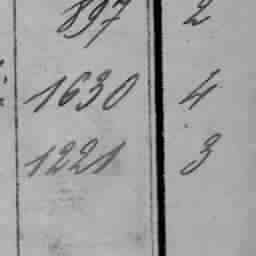 897 2
1630 4
1221 3